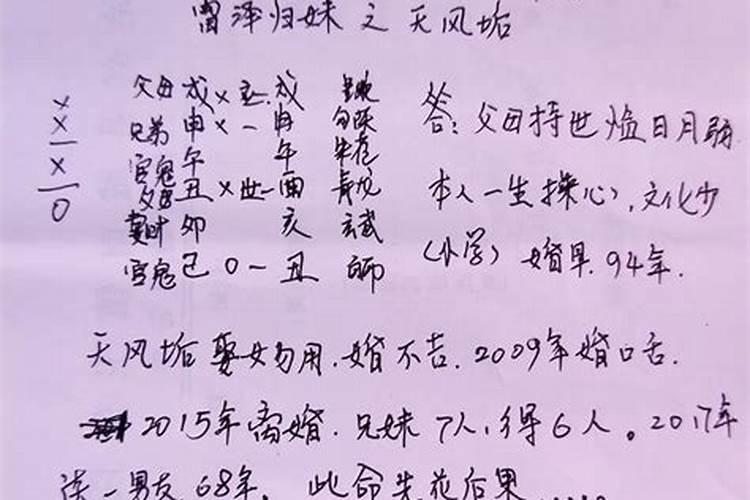 雷泽归妹之天风垢
父母戌×应戌
×兄弟申×一申 答:父母持世 日月
×官鬼午 午
×父母丑×世一酉 本人一生操心,文化少
0 卯 亥 玄武
官鬼巳0一丑 (小学)婚早.94年.
天风垢 娶女勿用.婚不吉.2009年婚口舌.
2015年离婚.兄妹7人,得6人。2017年
一男友68年, 此命先花后果......